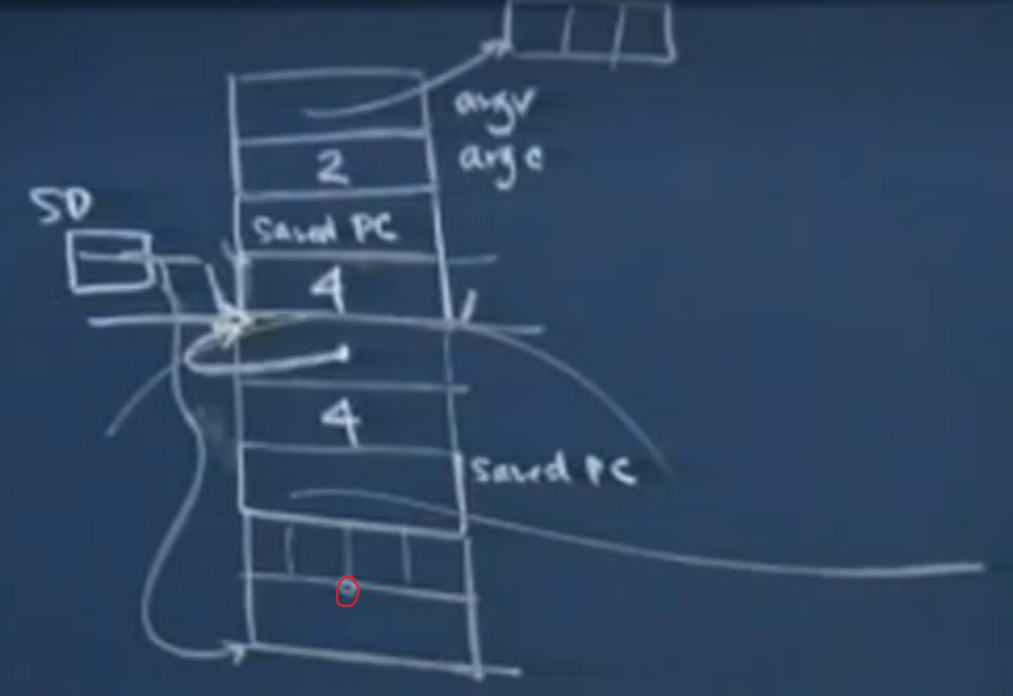 argv
2
argc
SP
Saved PC
4
4
Saved PC